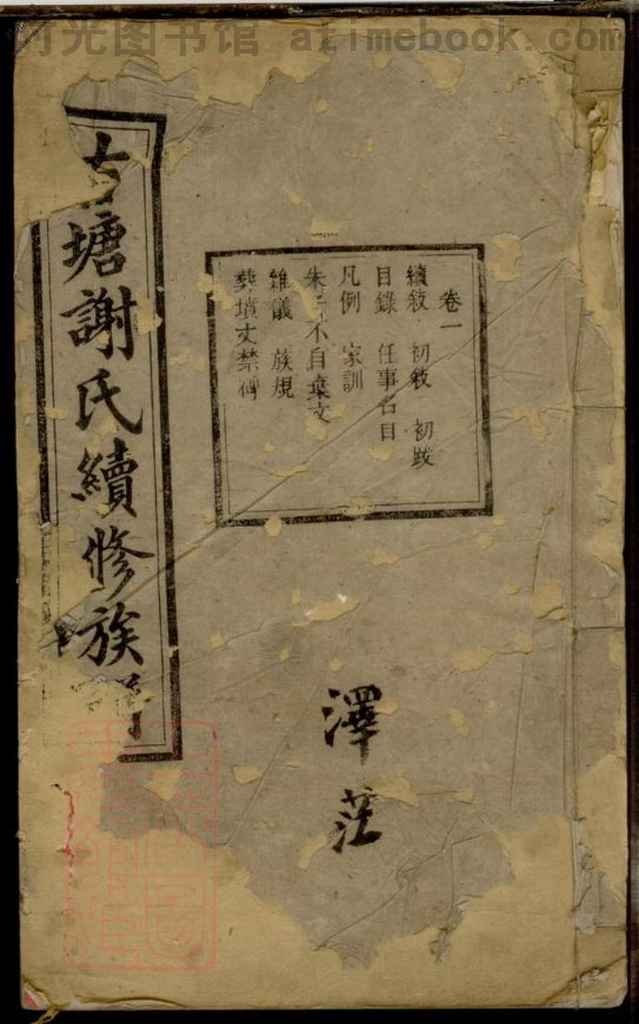 时光图书馆 atimebook.com
卷一
續敘 初敘 初跋
目錄 任事名目
凡例 家訓
朱子不自棄文
雜儀 族規
塟墳丈禁碑
古塘謝氏續修族
澤茫